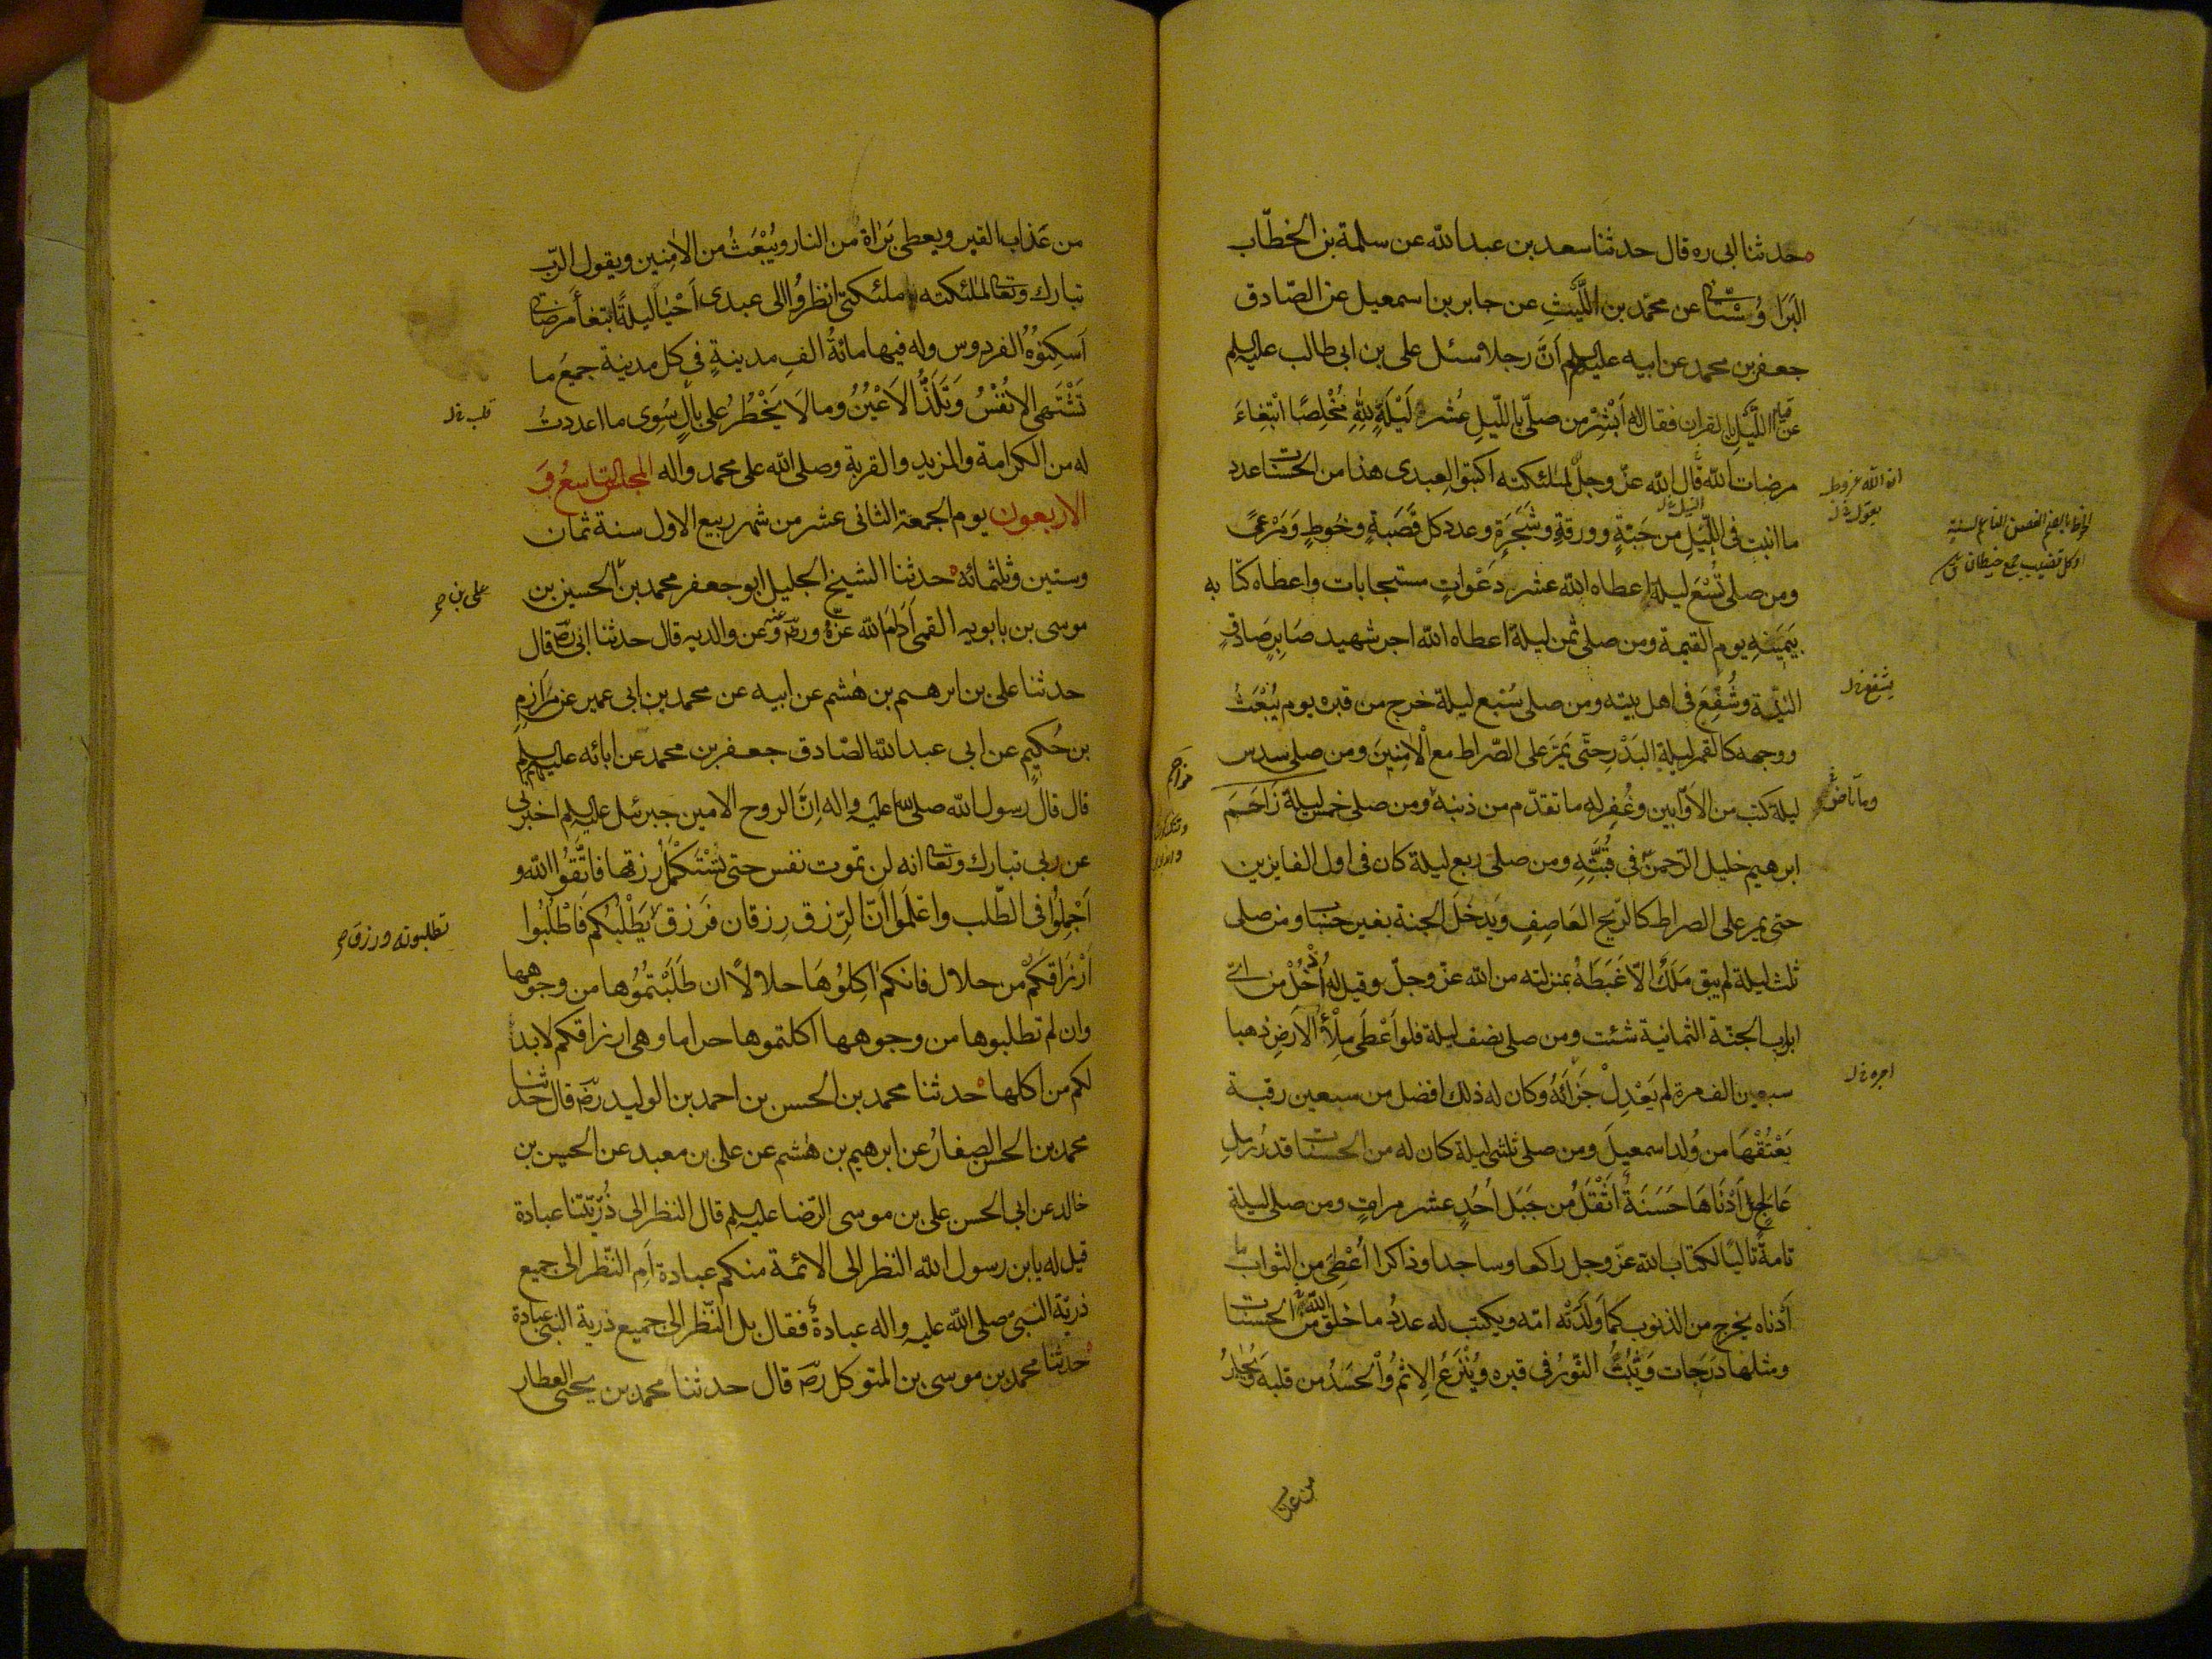 حدثنا ابى ره قال حدثنا سعد بن عبد الله عن سلمة بن الخطّاب
البَرَاوُسْتٰانى عن محمّد بن اللَّيثِ عن جابر بن اسمعيل عن الصّادق
جعفر بن محمد عن ابيه عليهم السلم اَنَّ رجلا سئل على بن ابى طالب عليه السلم
عن قيام اللَّيلِ بالقران فقال له اَبْشِرْ من صلّى باللّيلِ عُشْر لَيْلَةٍ لِلّهِ مُخْلِصًا ابْتِغاءَ
مرضات الله قال الله عزّ وجلّ لملئكته اكتبوا لعبدى هذا من الحسنات عدد
ما انبت فى اللّيْلِ من حَبّةٍ وورقةٍ وشَجَرَةٍ وعدد كل قَصَبةٍ وخُوطٍ ومَرْعىً
النيل خ ل
ومن صلى تُسْعَ ليلة اعطاه الله عشر دَعْواتٍ مستجابات واعطاه كتابه
بيَمينهِ يوم القيمة ومن صلى ثمن ليلة اعطاه الله اجر شهيد صَابرٍ صَادِقِ
النيّة وشُفِّعَ فى اهل بيته ومن صلى سُبْع ليلة خرج من قبره يوم يُبْعَثُ
ووجهه كالقمر ليلة البَدْرِ حتّى يَمُرّ على الصّراط مع الْاٰمِنِينَ ومن صلى سدس
ليلة كتب من الاَوّابين وغُفِر له ما تقدّم من ذنبه ومن صلى خمس ليلة زَاحَمَ
ابرهيم خليل الرّحمن فى قُبَّتِهِ ومن صلى ربع ليلة كان فى اول الفايزين
حتى يمر على الصراط كالرّيح العَاصِفِ ويَدخل الجنة بغير حساب ومن صلى
ثلث ليلة لم يبق مَلَكٌ الّا غَبَطَهُ بمنزلته من الله عزّ وجلّ وقيل له اُدْخُلْ من اىّ
ابواب الجنّة الثمانية شئت ومن صلى نصف ليلة فلو اُعْطِىَ مِلْأَ الاَرضِ ذهبا
سبعين الف مرة لم يَعْدِلْ جَزَائَهُ وكان له ذلك افضل من سبعين رقبة
يَعْتِقُهَا من وُلد اسمعيل ومن صلى ثلثى ليلة كان له من الحسنات قدر رَملِ
عَالجٍ اَدْنَاهَا حَسَنَةٌ اَثْقَلُ من جَبَل اُحُدٍ عشر مراتٍ ومن صلى ليلة
تامةً تاليًا لكتاب الله عزّ وجل راكعا وساجدا وذاكرا اُعْطِىَ من الثواب ما
اَدْناه يخرج من الذنوب كما وَلَدَتْه امّه ويكتب له عددُ ما خلق الله من الحسنات
ومثلها دَرَجات ويَثْبُتُ النّورُ فى قبره ويُنْزَعُ الاِثمُ والْحَسَدُ من قلبه ويُجارُ
من عذاب
بقول خ ل
يشفع خ ل
وما تاخر
اجره خ ل
من عَذاب القبر ويعطى بَرَاة من النار ويُبْعَثُ من الاٰمِنين ويقول الرّب
تبارك وتعالى لملئكته يا ملئكتى انظرُوا الى عبدى اَحْيٰا ليلةً ابتغاءَ مَرضاتى
اَسكِنوُهُ الفردوس وله فيها مائةُ الفِ مدينةٍ فى كل مدينة جميعَ ما
تَشْتَهِى الاَنفُسُ وَتَلَذُّ الاَعْيُنُ وما لا يَخْطُرُ على بالٍ سِوى ما اعددتُ
له من الكرامة والمزيد والقربة وصلى الله على محمد واله المجلس التاسِعُ وَ
الاربعون يوم الجمعة الثانى عشر من شهر ربيع الاول سنة ثمان
وستين وثلثمائه حدثنا الشيخ الجليل ابو جعفر محمد بن الحسين بن
موسى بن بابويه القمى اَدَامَ الله عزّه ورضى عنه وعن والديه قال حدثنا ابى رضه قال
حدثنا على بن ابرهيم بن هٰشم عن ابيه عن محمد بن ابى عمير عن مُرازم
بن حُكَيمٍ عن ابى عبد الله الصّادق جعفر بن محمد عن ابائه عليهم السلم
قال قال رسول الله صلى الله عليه واله اِنَّ الروح الامين جبرئيل عليه السلم اخبرنى
عن ربى تبارك وتعالى انه لن تموت نفس حتى تَسْتَكْمِلَ رزقها فاتّقُوا الله و
اَجْمِلُوا فى الطّلب واعْلَموا اَنّ الرّزق رِزقان فرَزق يَطْلُبُكم فَاطْلُبُوا
اَرْزَاقكُمْ من حلال فانكم اٰكِلُوهَا حلالاً ان طَلَبْتُمُوها من وجوهها
وان لم تطلبوها من وجوهها اكلتموها حراما وهى ارزاقكم لا بد
لكم من اكلها حدثنا محمد بن الحسن بن احمد بن الوليد رضه قال حدثنا
محمد بن الحسن الصفارُ عن ابرهيم بن هٰشم عن على بن معبد عن الحسين بن
خالد عن ابى الحسن على بن موسى الرّضا عليه السلم قال النظر الى ذُرّيّتنا عبادة
قيل له يابن رسول الله النظر الى الائمة منكم عبادة اَمِ النّظر الى جميع
ذريّة النبىّ صلى الله عليه واله عبادةٌ فقال بل النّظر الى جميع ذرية النبى عبادة
حدثنا محمد بن موسى بن المتوكل رضه قال حدثنا محمد بن يحيى العطار
قلب خ ل
على بن
تطلبونه ورزق